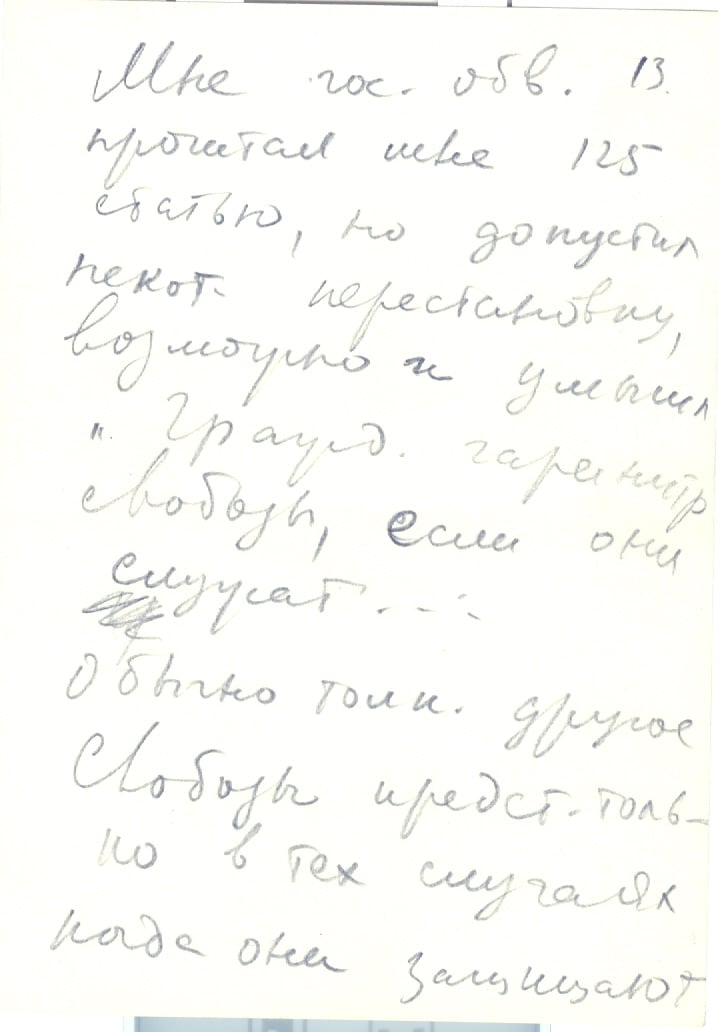 Мне гос. обв. 13
прочитал мне 125
статью, но допустил
некот. перестановку,
возможно и умышл
" Гражд. гарантир
свободы, если они
служат...
Обычно толк. другое
Свободы предст. толь-
ко в тех случаях
когда они защищают